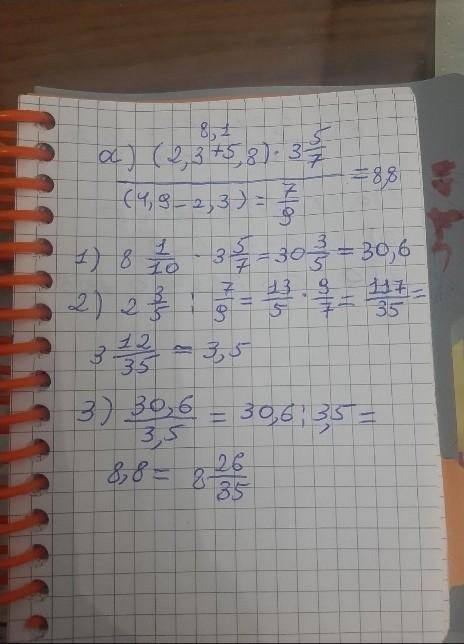 8,1
a) (2,3+5,8) · 3 5/7
(4,9-2,3) : 7/9 = 8,8
1) 8 1/10 · 3 5/7 = 30 3/5 = 30,6
2) 2 3/5 : 7/9 = 13/5 · 9/7 = 117/35 =
3 12/35 = 3,5
3) 30,6/3,5 = 30,6 : 3,5 =
8,8 = 8 26/35